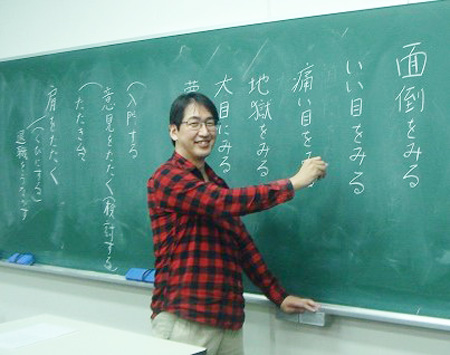 面倒をみる
いい目をみる
痛い目を
地獄をみる
大目にみる
夢
(入門する
意見をたたく(検討する)
(たたき台
肩をたたく
(くびにする)